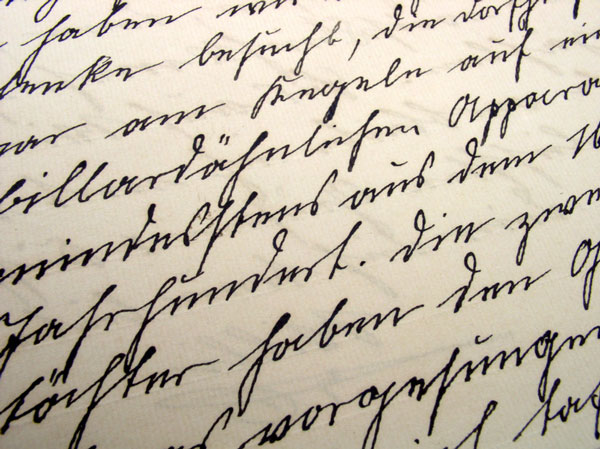 haben
enke besucht, die
war am Kegeln auf ein
billardähnlichen Appara
mindestens aus dem 16
Jahrhundert. Die zwe
töchter haben den G
as vorgesungen